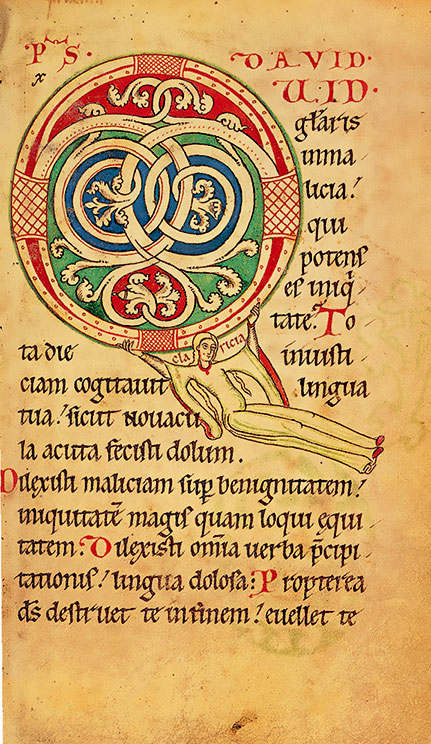 PS. DAVID.
x
QUID.
gl̄aris
in ma
licia?
qui
potens
es iniq̄
tate? To
ta die inіusti
cla ricia
ciam cogitauit lingua
tua? sicut nouacu
la acuta fecisti dolum.
Dilexisti maliciam sup̄ benignitatem?
iniquitatē magis quam loqui equi
tatem. Dilexisti om̄ia uerba p̄cipi
tationis? lingua dolosa? Propterea
d̄s destruet te in finem? euellet te